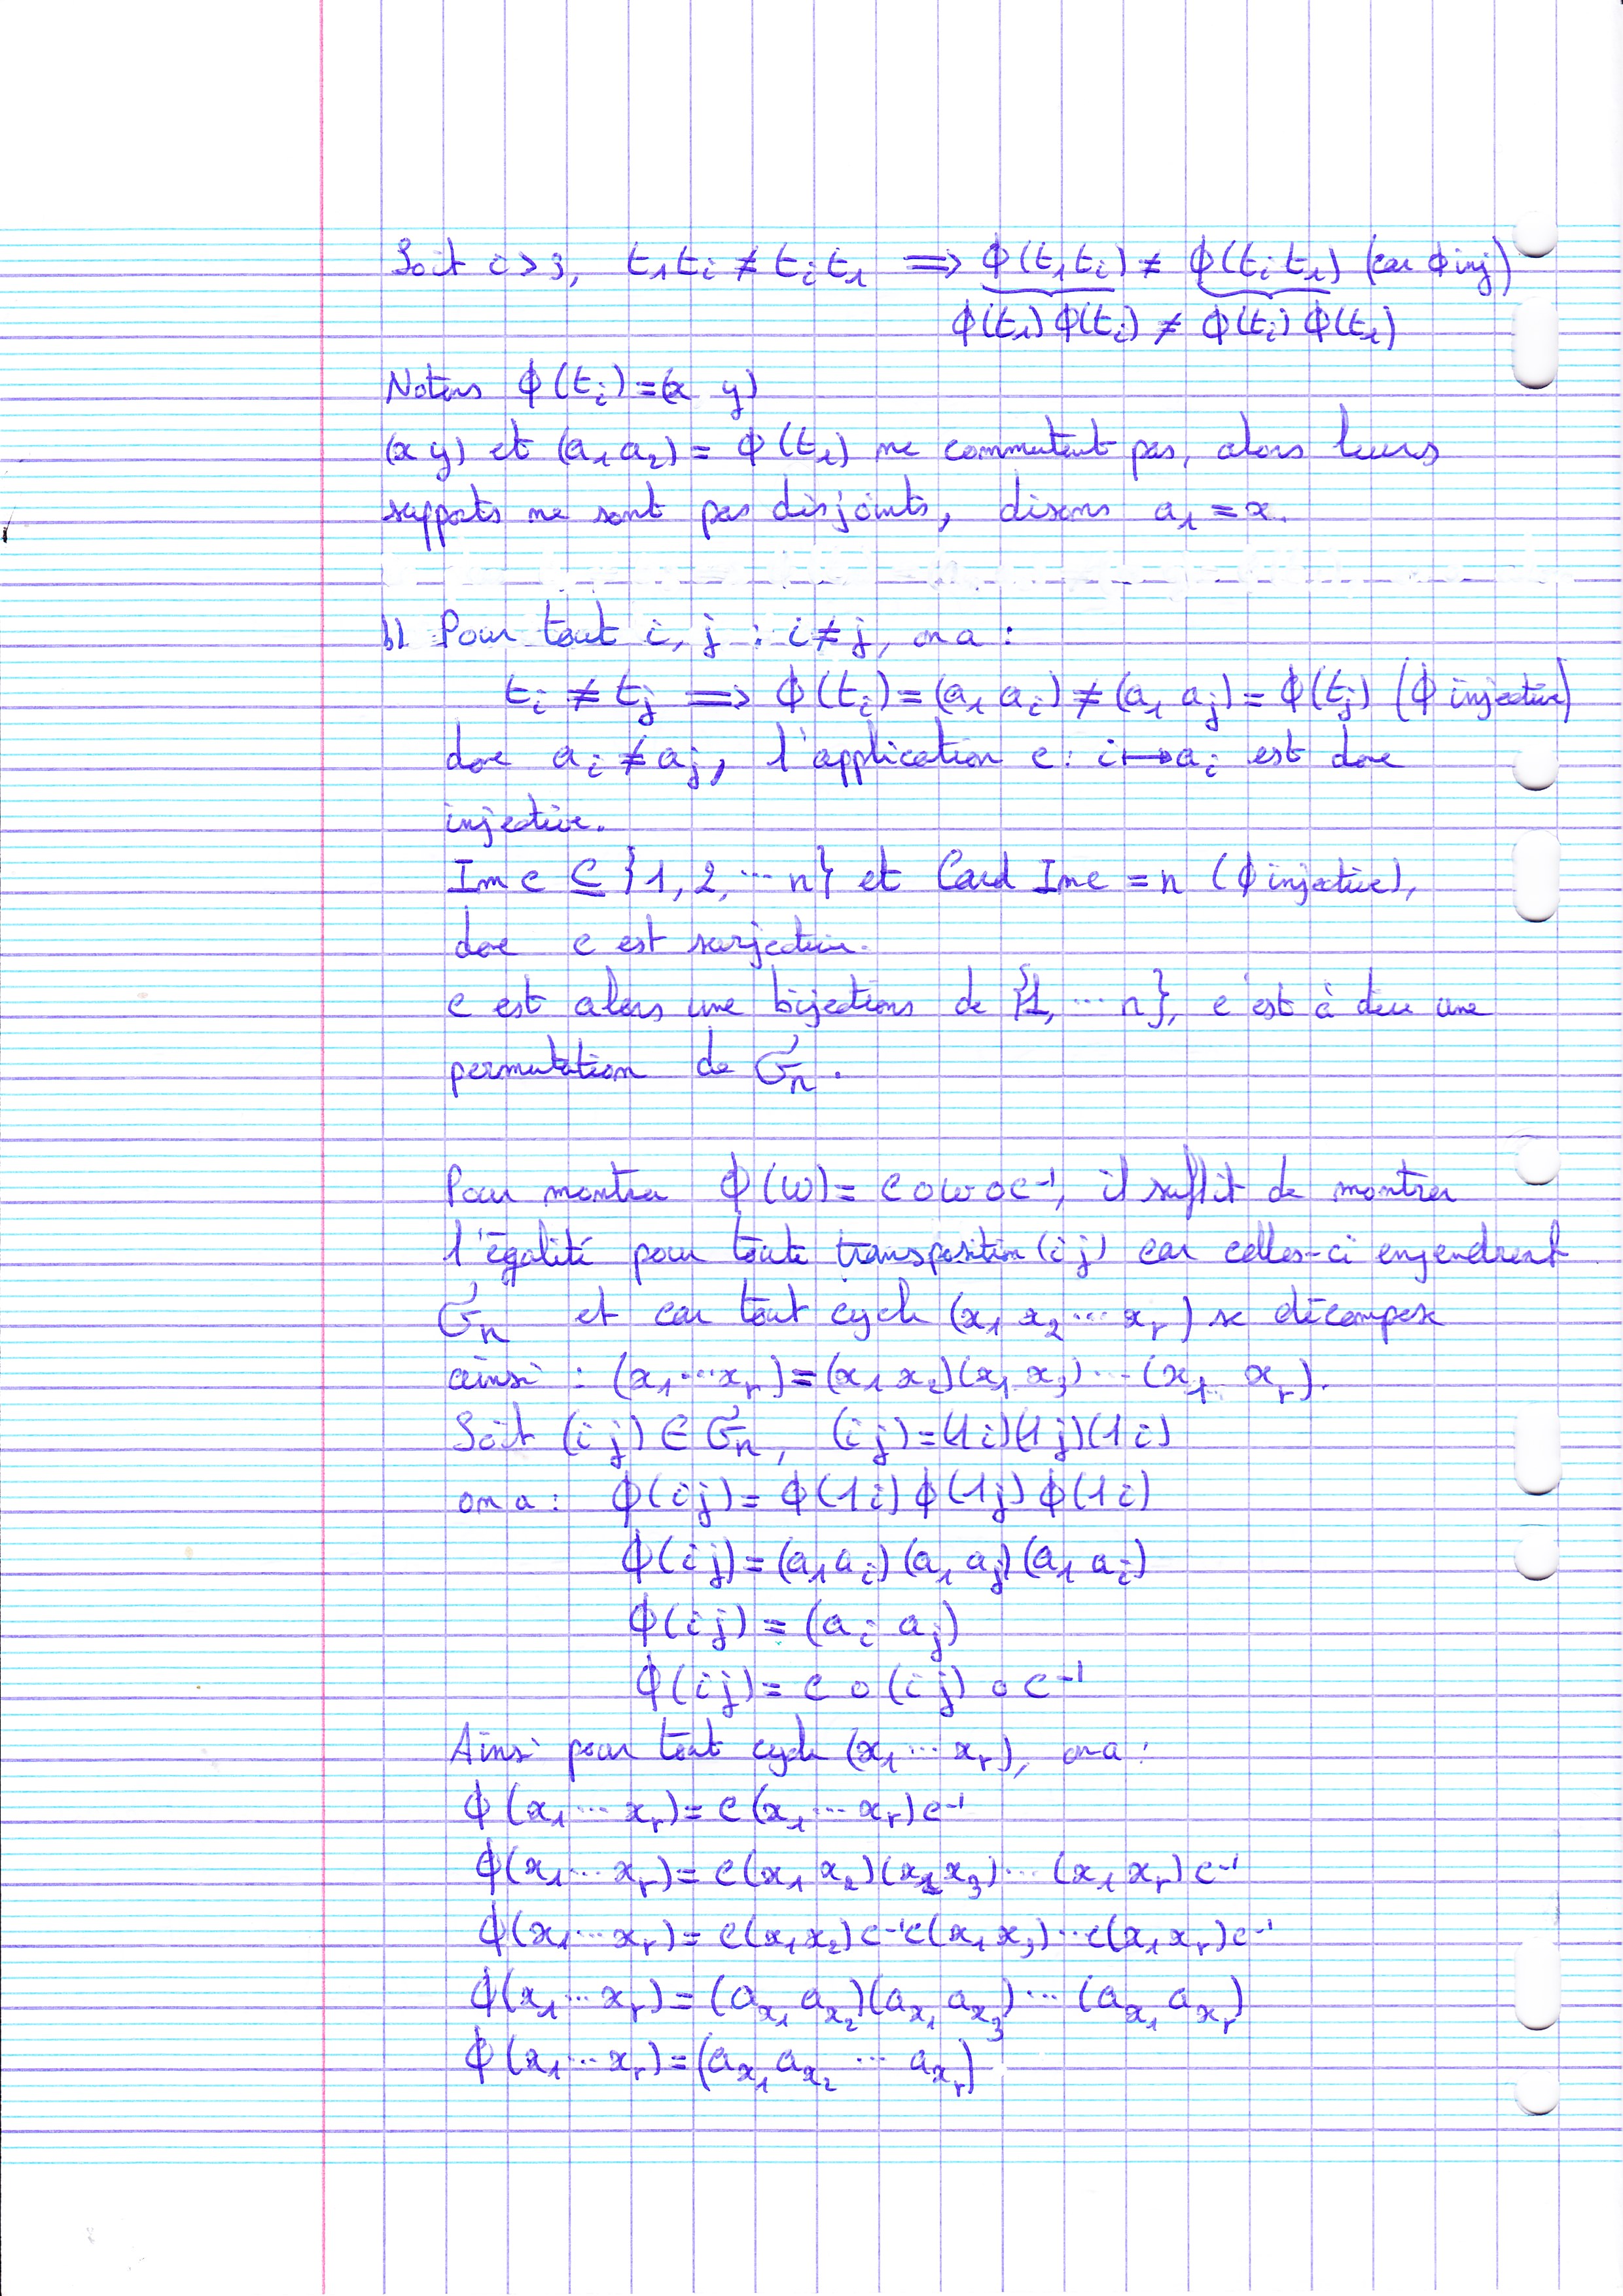 Soit i > 3, t₁ tᵢ ≠ tᵢ t₁ ⟹ ϕ(t₁ tᵢ) ≠ ϕ(tᵢ t₁) (car ϕ inj)
ϕ(t₁) ϕ(tᵢ) ≠ ϕ(tᵢ) ϕ(t₁)
Notons ϕ(tᵢ) = (x y)
(x y) et (a₁ a₂) = ϕ(t₁) ne commutent pas, alors leurs
supports ne sont pas disjoints, disons a₁ = x.
b) Pour tout i, j : i ≠ j, on a :
tᵢ ≠ tⱼ ⟹ ϕ(tᵢ) = (a₁ aᵢ) ≠ (a₁ aⱼ) = ϕ(tⱼ) (ϕ injective)
donc aᵢ ≠ aⱼ, l'application c : i ↦ aᵢ est donc
injective.
Im c ⊆ {1, 2, ... n} et Card Im c = n (ϕ injective),
donc c est surjective.
c est alors une bijections de {1, ... n}, c'est à dire une
permutation de σₙ.
Pour montrer ϕ(w) = c o w o c⁻¹, il suffit de montrer
l'égalité pour toute transposition (i j) car celles-ci engendrent
σₙ et car tout cycle (x₁ x₂ ... xᵣ) se décompose
ainsi : (x₁ ... xᵣ) = (x₁ x₂)(x₁ x₃) ... (x₁ xᵣ).
Soit (i j) ∈ σₙ, (i j) = (1 i)(1 j)(1 i)
on a : ϕ(i j) = ϕ(1 i) ϕ(1 j) ϕ(1 i)
ϕ(i j) = (a₁ aᵢ) (a₁ aⱼ) (a₁ aᵢ)
ϕ(i j) = (aᵢ aⱼ)
ϕ(i j) = c o (i j) o c⁻¹
Ainsi pour tout cycle (x₁ ... xᵣ), on a :
ϕ(x₁ ... xᵣ) = c (x₁ ... xᵣ) c⁻¹
ϕ(x₁ ... xᵣ) = c(x₁ x₂)(x₁ x₃) ... (x₁ xᵣ) c⁻¹
ϕ(x₁ ... xᵣ) = c(x₁ x₂) c⁻¹c(x₁ x₃) ... c(x₁ xᵣ) c⁻¹
ϕ(x₁ ... xᵣ) = (a_x₁ a_x₂)(a_x₁ a_x₃) ... (a_x₁ a_xᵣ)
ϕ(x₁ ... xᵣ) = (a_x₁ a_x₂ ... a_xᵣ)